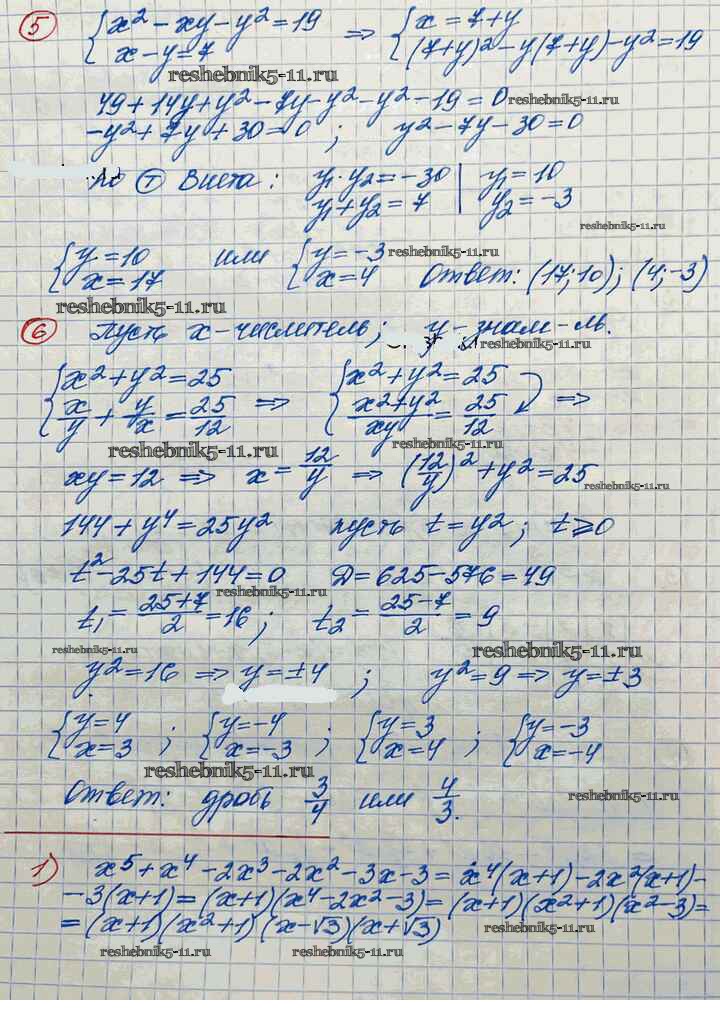 5) { x² - xy - y² = 19 ⇒ { x = 7 + y
x - y = 7 (7+y)² - y(7+y) - y² = 19
reshebnik5-11.ru
49 + 14y + y² - 7y - y² - y² - 19 = 0
reshebnik5-11.ru
-y² + 7y + 30 = 0 ; y² - 7y - 30 = 0
по Т Виета : y₁·y₂ = -30 | y₁ = 10
y₁ + y₂ = 7 | y₂ = -3
reshebnik5-11.ru
{ y = 10 или { y = -3 reshebnik5-11.ru
x = 17 x = 4 Ответ: (17; 10); (4; -3)
reshebnik5-11.ru
6) Пусть x - числитель; y - знам-ль.
reshebnik5-11.ru
{ x² + y² = 25 { x² + y² = 25
x/y + y/x = 25/12 ⇒ (x²+y²)/xy = 25/12 ⇒
reshebnik5-11.ru reshebnik5-11.ru
xy = 12 ⇒ x = 12/y ⇒ (12/y)² + y² = 25
reshebnik5-11.ru
144 + y⁴ = 25y² пусть t = y² ; t ⩾ 0
t² - 25t + 144 = 0 D = 625 - 576 = 49
reshebnik5-11.ru
t₁ = (25+7)/2 = 16 ; t₂ = (25-7)/2 = 9
reshebnik5-11.ru reshebnik5-11.ru
y² = 16 ⇒ y = ±4 ; y² = 9 ⇒ y = ±3
{ y = 4 ; { y = -4 ; { y = 3 ; { y = -3
x = 3 x = -3 x = 4 x = -4
reshebnik5-11.ru
Ответ: дробь 3/4 или 4/3.
reshebnik5-11.ru
1) x⁵ + x⁴ - 2x³ - 2x² - 3x - 3 = x⁴(x+1) - 2x²(x+1) -
- 3(x+1) = (x+1)(x⁴ - 2x² - 3) = (x+1)(x²+1)(x²-3) =
= (x+1)(x²+1)(x-√3)(x+√3) reshebnik5-11.ru
reshebnik5-11.ru reshebnik5-11.ru